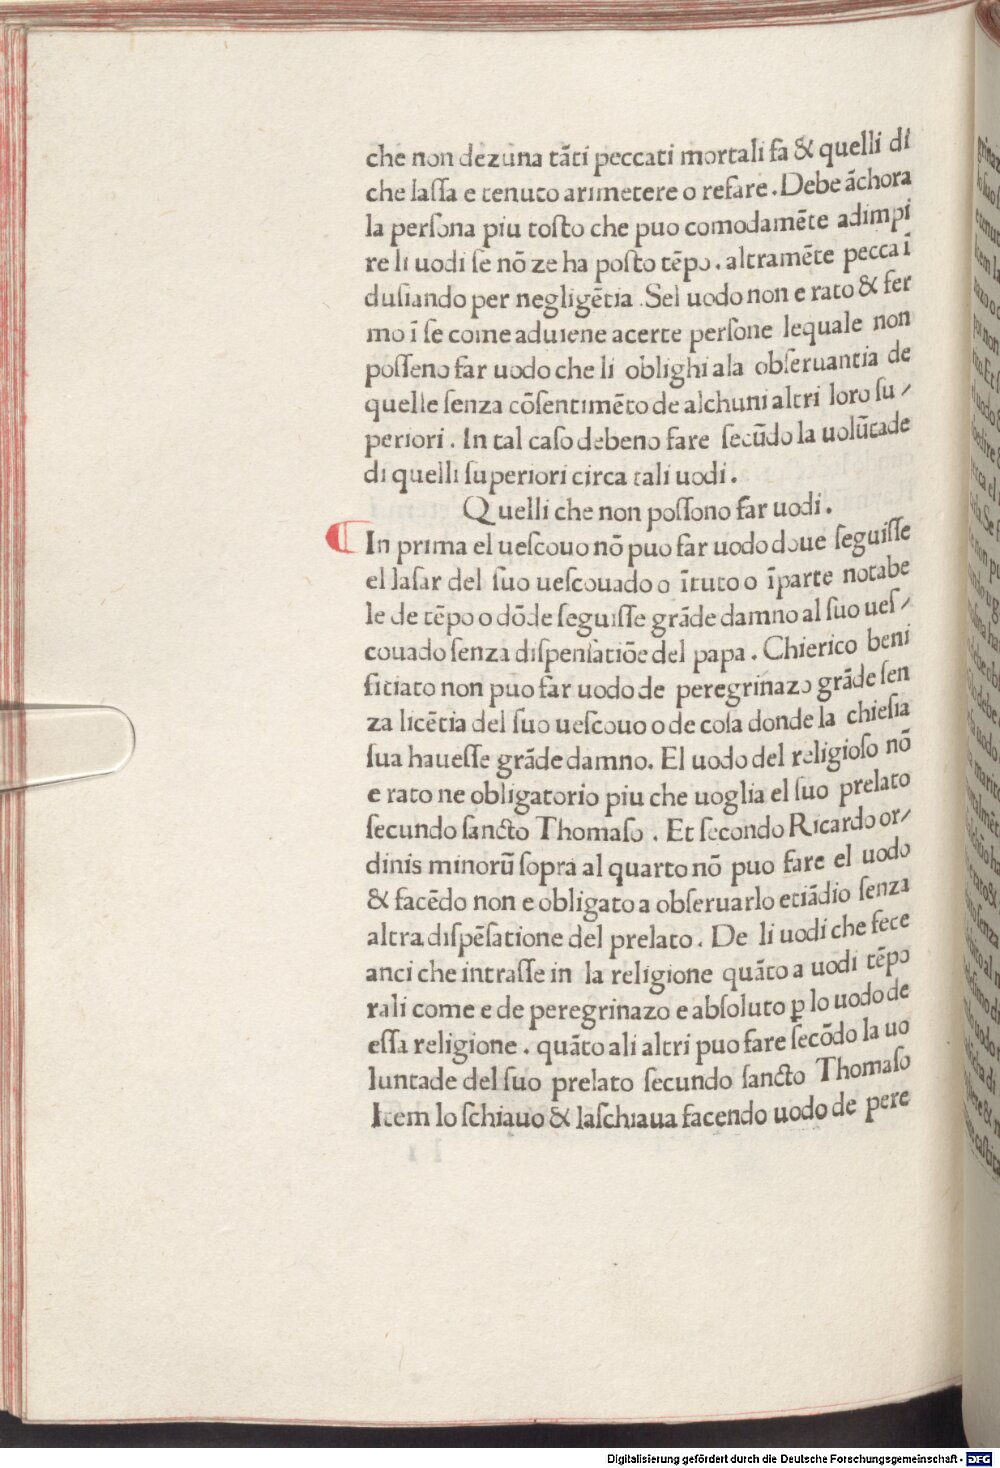 che non dezuna tāti peccati mortali fa & quelli di
che laſſa e tenuto arimetere o refare. Debe āchora
la perſona piu toſto che puo comodamēte adimpi
re li uodi ſe nō ze ha poſto tēpo. altramēte pecca ī
duſiando per negligētia. Sel uodo non e rato & fer
mo ī ſe come aduiene acerte perſone lequale non
poſſeno far uodo che li oblighi ala obſeruantia de
quelle ſenza cōſentimēto de alchuni altri loro ſu⸗
periori. In tal caſo debeno fare ſecūdo la uolūtade
di quelli ſuperiori circa tali uodi.
Quelli che non poſſono far uodi.
¶ In prima el ueſcouo nō puo far uodo doue ſeguiſſe
el laſar del ſuo ueſcouado o ītuto o īparte notabe
le de tēpo o dōde ſeguiſſe grāde damno al ſuo ueſ⸗
couado ſenza diſpenſatiōe del papa. Chierico beni
fitiato non puo far uodo de peregrinazo grāde ſen
za licētia del ſuo ueſcouo o de coſa donde la chieſia
ſua haueſſe grāde damno. El uodo del religioſo nō
e rato ne obligatorio piu che uoglia el ſuo prelato
ſecundo ſancto Thomaſo. Et ſecondo Ricardo or⸗
dinis minorū ſopra al quarto nō puo fare el uodo
& facēdo non e obligato a obſeruarlo etiādio ſenza
altra diſpēſatione del prelato. De li uodi che fece
anci che intraſſe in la religione quāto a uodi tēpo
rali come e de peregrinazo e abſoluto ꝑ lo uodo de
eſſa religione. quāto ali altri puo fare ſecōdo la uo
luntade del ſuo prelato ſecundo ſancto Thomaſo
Item lo ſchiauo & laſchiaua facendo uodo de pere
Digitalisierung gefördert durch die Deutsche Forschungsgemeinschaft - DFG